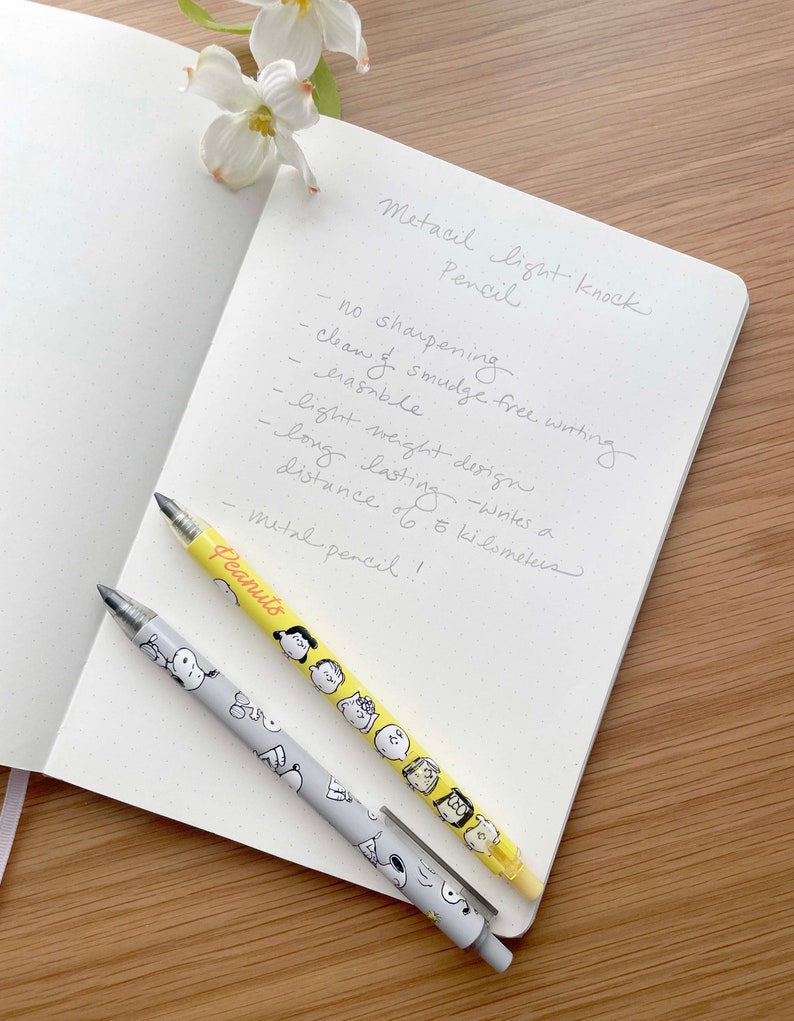 Metacil light knock
Pencil
- no sharpening
- clean & smudge free writing
- erasable
- light weight design
- long lasting - writes a
distance of 5 kilometers
- metal pencil!
Peanuts